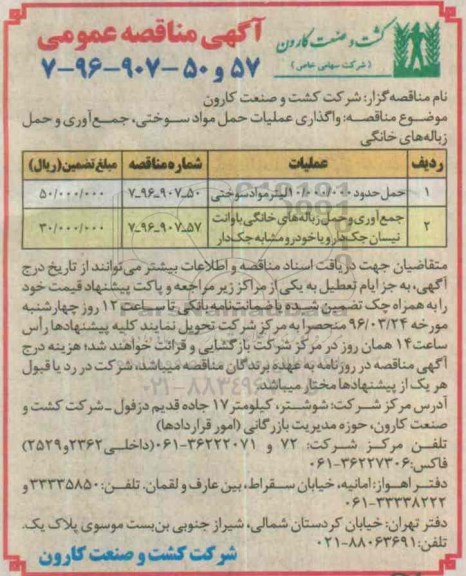 آگهی مناقصه عمومی
۵۷ و ۵۰-۹۰۷-۹۶-۷
کشت و صنعت کارون
(شرکت سهامی خاص)
نام مناقصه‌گزار: شرکت کشت و صنعت کارون
موضوع مناقصه: واگذاری عملیات حمل مواد سوختی، جمع‌آوری و حمل
زباله‌های خانگی
ردیف عملیات شماره مناقصه مبلغ تضمین (ریال)
۱ حمل حدود ۱۰/۰۰۰/۰۰۰ لیتر مواد سوختی ۵۰-۹۰۷-۹۶-۷ ۵۰/۰۰۰/۰۰۰
۲ جمع‌آوری و حمل زباله‌های خانگی با وانت
نیسان جک‌دار و یا خودرو مشابه جک‌دار ۵۷-۹۰۷-۹۶-۷ ۳۰/۰۰۰/۰۰۰
متقاضیان جهت دریافت اسناد مناقصه و اطلاعات بیشتر می‌توانند از تاریخ درج
آگهی، به جز ایام تعطیل به یکی از مراکز زیر مراجعه و پاکت پیشنهاد قیمت خود
را به همراه چک تضمین شده یا ضمانت‌نامه بانکی تا ساعت ۱۲ روز چهارشنبه
مورخه ۹۶/۰۳/۲۴ منحصرا به مرکز شرکت تحویل نمایند کلیه پیشنهادها رأس
ساعت ۱۴ همان روز در مرکز شرکت بازگشایی و قرائت خواهند شد؛ هزینه درج
آگهی مناقصه در روزنامه به عهده برندگان مناقصه میباشد، شرکت در رد یا قبول
هر یک از پیشنهادها مختار میباشد.
آدرس مرکز شرکت: شوشتر، کیلومتر ۱۷ جاده قدیم دزفول - شرکت کشت و
صنعت کارون، حوزه مدیریت بازرگانی (امور قراردادها)
تلفن مرکز شرکت: ۷۲ و ۳۶۲۲۲۰۷۱-۰۶۱ (داخلی ۲۳۶۲ و ۲۵۲۹)
فاکس: ۳۶۲۲۷۳۰۶-۰۶۱
دفتر اهواز: امانیه، خیابان سقراط، بین عارف و لقمان. تلفن: ۳۳۳۳۵۸۵۰ و
۳۳۳۳۸۲۲۲-۰۶۱
دفتر تهران: خیابان کردستان شمالی، شیراز جنوبی بن‌بست موسوی پلاک یک.
تلفن: ۸۸۰۶۳۶۹۱-۰۲۱
شرکت کشت و صنعت کارون